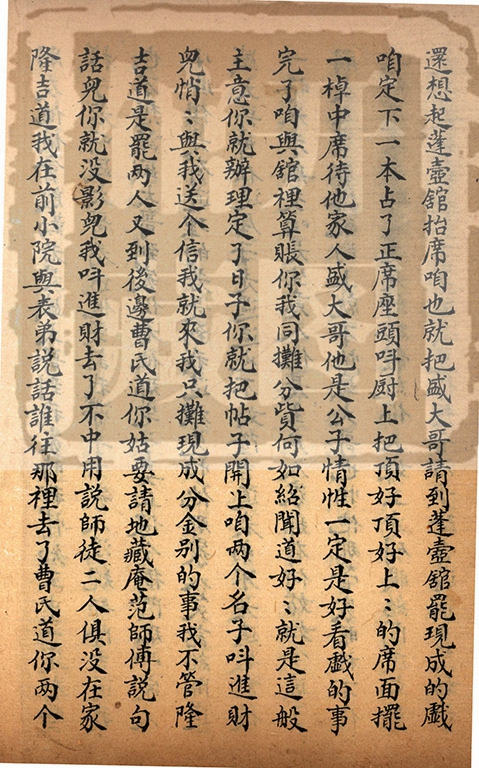 還想起蓬壺舘抬席咱也就把盛大哥請到蓬壺舘罷現成的戲
咱定下一本占了正席座頭呌厨上把頂好頂好上〻的席面擺
一棹中席待他家人盛大哥他是公子情性一定是好看戲的事
完了咱與舘裡算賬你我同攤分貲何如紹聞道好〻就是這般
主意你就辦理定了日子你就把帖子開上咱两个名子呌進財
兒悄〻與我送个信我就來我只攤現成分金别的事我不管隆
吉道是罷两人又到後邊曹氏道你姑要請地藏庵范師傅説句
話兒你就没影兒我呌進財去了不中用説師徒二人俱没在家
隆吉道我在前小院與表弟説話誰往那裡去了曹氏道你两个